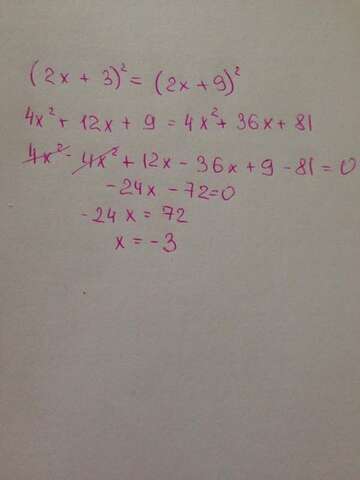 (2x + 3)² = (2x + 9)²
4x² + 12x + 9 = 4x² + 36x + 81
4x² - 4x² + 12x - 36x + 9 - 81 = 0
-24x - 72 = 0
-24x = 72
x = -3